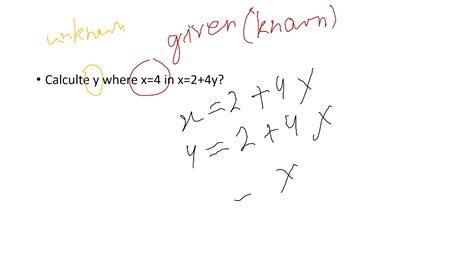 unknown
given (known)
• Calculte y where x=4 in x=2+4y?
x = 2 + 4 y
4 = 2 + 4 y
= y